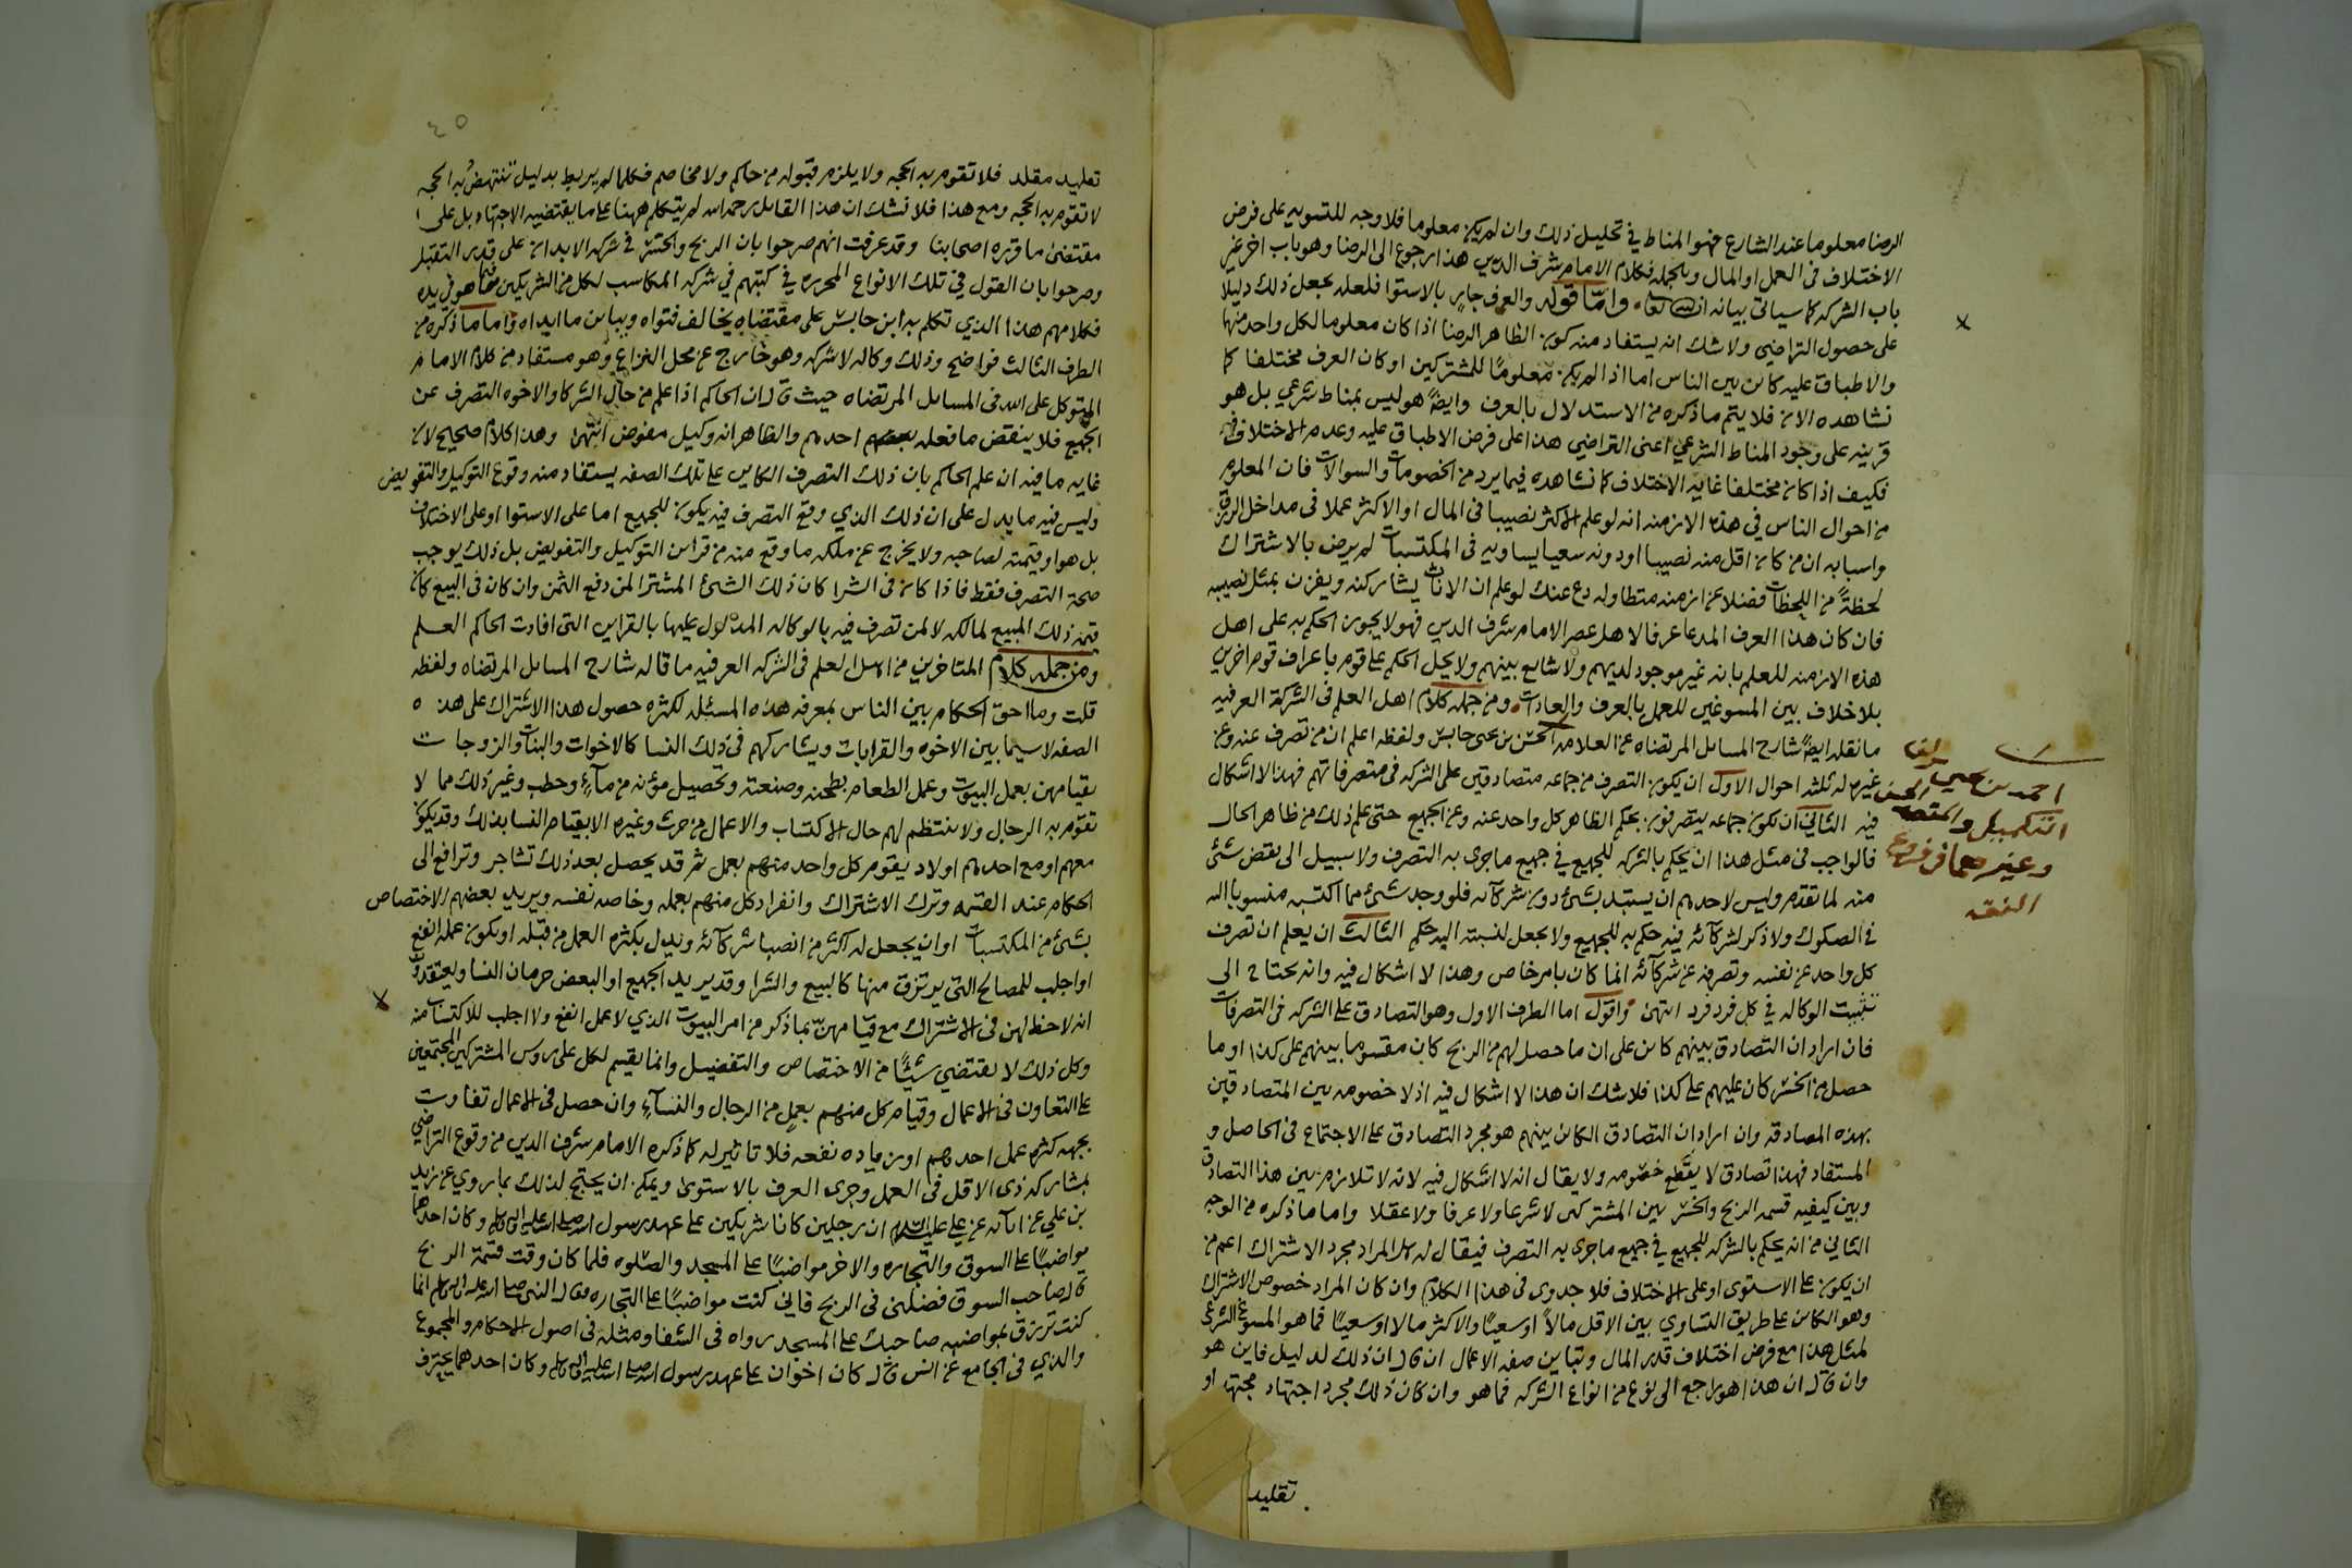 الرضا معلوما عند الشارع فهو المناط في تحليل ذلك وان لم يكن معلوما فلا وجه للتسويه على فرض
الاختلاف في العمل او المال وبالجمله فكلام الامام شرف الدين هذا رجوع الى الرضا وهو باب اخر غير
باب الشركه كما سياتي بيانه ان شا الله تعا واما قوله والعرف جار بالاستوا فلعله يجعل ذلك دليلا
على حصول التراضي ولا شك انه يستفاد منه كون الظاهر الرضا اذا كان معلوما لكل واحد منهما
والاطباق عليه كائن بين الناس اما اذا لم يكن معلوما للمشتركين او كان العرف مختلفا كما
نشاهده الان فلا يتم ما ذكره من الاستدلال بالعرف وايضا هو ليس بمناط شرعي بل هو
قرينه على وجود المناط الشرعي اعني التراضي هذا على فرض الاطباق عليه وعدم الاختلاف فيه
فكيف اذا كان مختلفا غاية الاختلاف كما نشاهده فيما يرد من الخصومات والسوالات فان المعلوم
من احوال الناس في هذه الازمنه انه لو علم الاكثر نصيبا في المال او الاكثر عملا في مداخل الرزق
واسبابه ان من كان اقل منه نصيبا او دونه سعيا يساويه في المكتسبات لم يرض بالاشتراك
لحظة من اللحظات فضلا عن ازمنه متطاوله دع عنك لو علم ان الاناث يشاركنه ويفزن بمثل نصيبه
فان كان هذا العرف المدعا عرفا لاهل عصر الامام شرف الدين فهو لا يجوز الحكم به على اهل
هذه الازمنه للعلم بانه غير موجود لديهم ولا شايع بينهم ولا يحل الحكم على قوم باعراف قوم اخرين
بلا خلاف بين المسوغين للعمل بالعرف والعادات ومن جمله كلام اهل العلم في الشركة العرفيه
ما نقله ايضا شارح المسائل المرتضاه عن العلامه الحسن بن يحيى حابس ولفظه اعلم ان من تصرف عنه وعن
غيره له ثلثه احوال الاول ان يكون التصرف من جماعه متصادقين على الشركه في متصرفاتهم فهذا لا اشكال
فيه الثاني ان تكون جماعه يتصرفون بحكم الظاهر كل واحد عنه وعن الجميع حتى علم ذلك من ظاهر الحال
فالواجب في مثل هذا ان يحكم بالشركه للجميع في جميع ما جرى به التصرف ولا سبيل الى نقض شئ
منه لما تقدم وليس لاحدهم ان يستبد بشئ دون شركائه فلو وجد شئ مما اكتسبه منسوبا اليه
في الصكوك ولا ذكر لشركائه فيه حكم به للجميع ولا يجعل لنسبته اليه حكم الثالث ان يعلم ان تصرف
كل واحد عن نفسه وتصرفه عن شركائه انما كان بامر خاص وهذا لا اشكال فيه وانه يحتاج الى
تثبيت الوكاله في كل فرد فرد انتهى واقول اما الطرف الاول وهو التصادق على الشركه في التصرفات
فان اراد ان التصادق بينهم كائن على ان ما حصل لهم من الربح كان مقسوما بينهم على كذا او ما
حصل من الخسر كان عليهم على كذا فلا شك ان هذا لا اشكال فيه اذ لا خصومه بين المتصادقين
بهذه المصادقه وان اراد ان التصادق الكائن بينهم هو مجرد التصادق على الاجتماع في الحاصل و
المستفاد فهذا تصادق لا يقطع خصومه ولا يقال انه لا اشكال فيه لانه لا تلازم بين هذا التصادق
وبين كيفيه قسمه الربح والخسر بين المشتركين لا شرعا ولا عرفا ولا عقلا واما ما ذكره من الوجه
الثاني من انه يحكم بالشركه للجميع في جميع ما جرى به التصرف فيقال له هل المراد مجرد الاشتراك اعم من
ان يكون على الاستوى او على الاختلاف فلا جدوى في هذا الكلام وان كان المراد خصوص الاشتراك
وهو الكائن على طريق التساوي بين الاقل مالا او سعيا والاكثر مالا او سعيا فما هو المسوغ الشرعي
لمثل هذا مع فرض اختلاف قدر المال وتباين صفه الاعمال ان قال ان ذلك لدليل فاين هو
وان قال ان هذا هو راجع الى نوع من انواع الشركه فما هو وان كان ذلك مجرد اجتهاد مجتهد او
تقليد
احمد بن يحيى
التكميل والمقصد
وغيرهما في فروع
الفقه
٤٥
تقليد مقلد فلا تقوم به الحجه ولا يلزم قبوله من حاكم ولا مخاصم فكلما لم يربط بدليل تنتهض به الحجه
لا تقوم به الحجه ومع هذا فلا نشك ان هذا القائل رحمه الله لم يتكلم ههنا على ما يقتضيه الاجتهاد بل على
مقتضى ما قرره اصحابنا وقد عرفت انهم صرحوا بان الربح والخسر في شركه الابدان على قدر التقبل
وصرحوا بان القول في تلك الانواع المحرره في كتبهم في شركه المكاسب لكل من الشريكين فيما هو في يده
فكلامهم هذا الذي تكلم به ابن حابس على مقتضاه يخالف فتواه ويباين ما ابداه واما ما ذكره من
الطرف الثالث فواضح وذلك وكاله لا شركه وهو خارج عن محل النزاع وهو مستفاد من كلام الامام
المتوكل على الله في المسائل المرتضاه حيث قال ان الحاكم اذا علم من حال الشركا والاخوه التصرف عن
الجميع فلا ينقض ما فعله احدهم والظاهر انه وكيل مفوض انتهى وهذا كلام صحيح لان
غايه ما فيه ان علم الحاكم بان ذلك التصرف الكائن على تلك الصفه يستفاد منه وقوع التوكيل والتفويض
وليس فيه ما يدل على ان ذلك الذي وقع التصرف فيه يكون للجميع اما على الاستوا او على الاختلاف
بل هو او قيمته لصاحبه ولا يخرج عن ملكه ما وقع منه من قرائن التوكيل والتفويض بل ذلك يوجب
صحة التصرف فقط فاذا كان في الشرا كان ذلك الشئ المشترا لمن دفع الثمن وان كان في البيع كان
قيمه ذلك المبيع لمالكه لا لمن تصرف فيه بالوكاله المدلول عليها بالقرائن التي افادت الحاكم العلم
ومن جمله كلام المتاخرين من اهل العلم في الشركه العرفيه ما قاله شارح المسائل المرتضاه ولفظه
قلت وما احق الحكام بين الناس بمعرفه هذه المسئله لكثره حصول هذا الاشتراك على هذه
الصفه لا سيما بين الاخوه والقرابات ويشاركهم في ذلك النسا كالاخوات والبنات والزوجات
بقيامهن بعمل البيوت وعمل الطعام بطحنه وصنعته وتحصيل مؤنه من ماء وحطب وغير ذلك مما لا
تقوم به الرجال ولا ينتظم لهم حال الاكتساب والاعمال من حرث وغيره الا بقيام النسا بذلك وقد يكون
معهم او مع احدهم اولاد يقوم كل واحد منهم بعمل ثم قد يحصل بعد ذلك تشاجر وترافع الى
الحكام عند القسمه وترك الاشتراك وانفراد كل منهم بعمله وخاصه نفسه ويريد بعضهم الاختصاص
بشئ من المكتسبات او ان يجعل له اكثر من انصبا شركائه ويدل بكثره العمل من قبله او بكون عمله انفع
او اجلب للمصالح التي يرتزق منها كالبيع والشرا وقد يريد الجميع او البعض حرمان النسا ويعتقدون
انه لا حظ لهن في الاشتراك مع قيامهن بما ذكر من امر البيوت الذي لا عمل انفع ولا اجلب للاكتساب منه
وكل ذلك لا يقتضي شيئا من الاختصاص والتفضيل وانما يقسم لكل على روس المشتركين المجتمعين
على التعاون في الاعمال وقيام كل منهم بعمل من الرجال والنساء وان حصل في الاعمال تفاوت
بجهه كثره عمل احدهم او زياده نفعه فلا تاثير له كما ذكره الامام شرف الدين من وقوع التراضي
بمشاركه ذي الاقل في العمل وجرى العرف بالاستوى ويمكن ان يحتج لذلك بما روي عن زيد
بن علي عن ابائه عن علي عليه السلام ان رجلين كانا شريكين على عهد رسول الله صلى الله عليه واله وسلم وكان احدهما
مواضبا على السوق والتجاره والاخر مواضبا على المسجد والصلوه فلما كان وقت قسمة الربح
قال صاحب السوق فضلني في الربح فاني كنت مواضبا على التجاره فقال النبي صلى الله عليه واله وسلم انما
كنت ترزق بمواضبه صاحبك على المسجد رواه في الشفا ومثله في اصول الاحكام والمجموع
والذي في الجامع عن انس قال كان اخوان على عهد رسول الله صلى الله عليه واله وسلم وكان احدهما يحترف